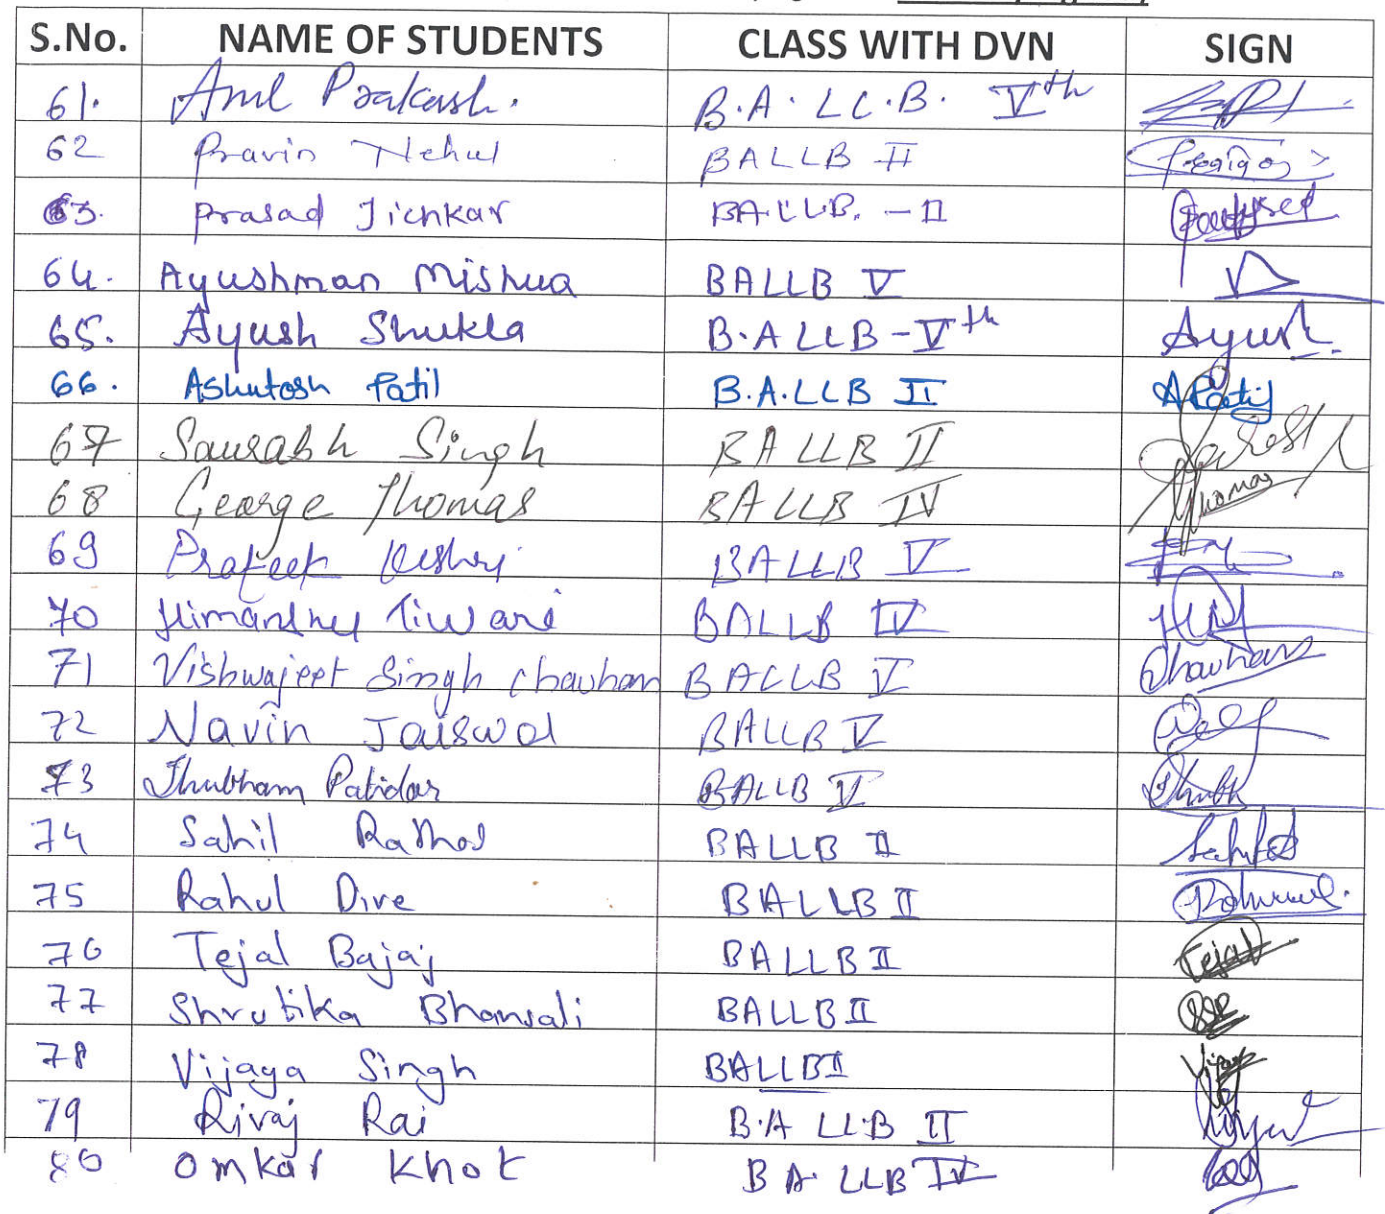 S.No. NAME OF STUDENTS CLASS WITH DVN SIGN
61. Anil Prakash. B.A. LL.B. Vth
62 Pravin Nehul BALLB II
63. Prasad Jichkar BA.LL.B. - II
64. Ayushman Mishra BALLB V
65. Ayush Shukla B.A LLB - Vth Ayush.
66. Ashutosh Patil B.A.LLB II APatil
67 Saurabh Singh BALLB II
68 George Thomas BALLB IV Thomas
69 Prateek BALLB V
70 Himanshu Tiwari BALLB IV
71 Vishwajeet Singh Chauhan BALLB V Chauhan
72 Navin Jaiswal BALLB V
73 Shubham Patidar BALLB V Shubh
74 Sahil Rathod BALLB II
75 Rahul Dive BALLB II
76 Tejal Bajaj BALLB II Tejal
77 Shrutika Bhansali BALLB II
78 Vijaya Singh BALLB II
79 Rivaj Rai B.A LL.B II
80 Omkar Khot B A. LLB IV